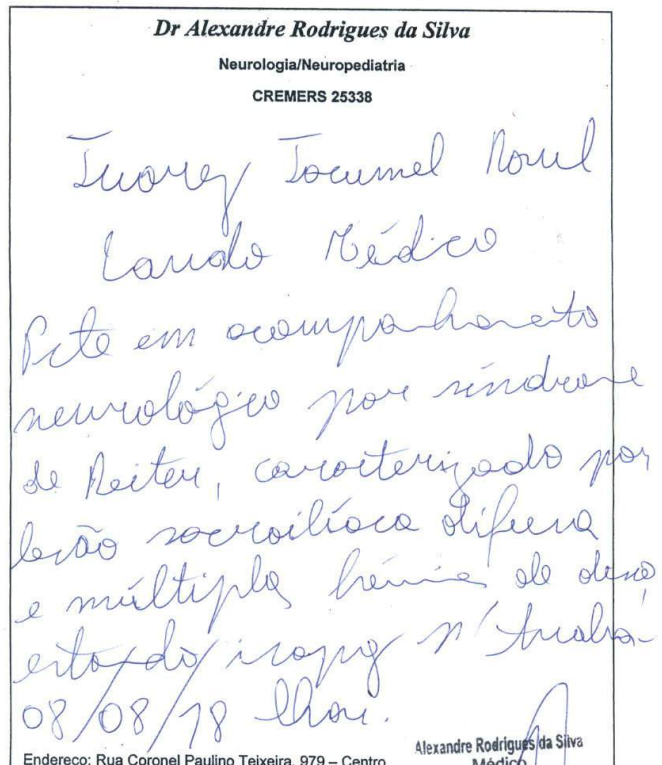 Dr Alexandre Rodrigues da Silva
Neurologia/Neuropediatria
CREMERS 25338
Juarez
Laudo Médico
Pcte em acompanhamento
neurológico por síndrome
de Reiter, caracterizado por
lesão sacroilíaca difusa
e múltiplas hérnias de disco
estando incapaz p/ traba-
08/08/18 lhar.
Alexandre Rodrigues da Silva
Médico
Endereço: Rua Coronel Paulino Teixeira, 979 – Centro